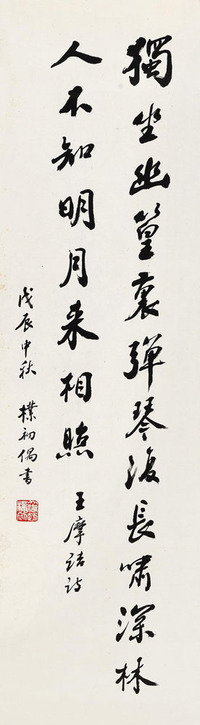 獨坐幽篁裏彈琴復長嘯深林
人不知明月来相照
王摩詰詩
戊辰中秋 樸初偶書